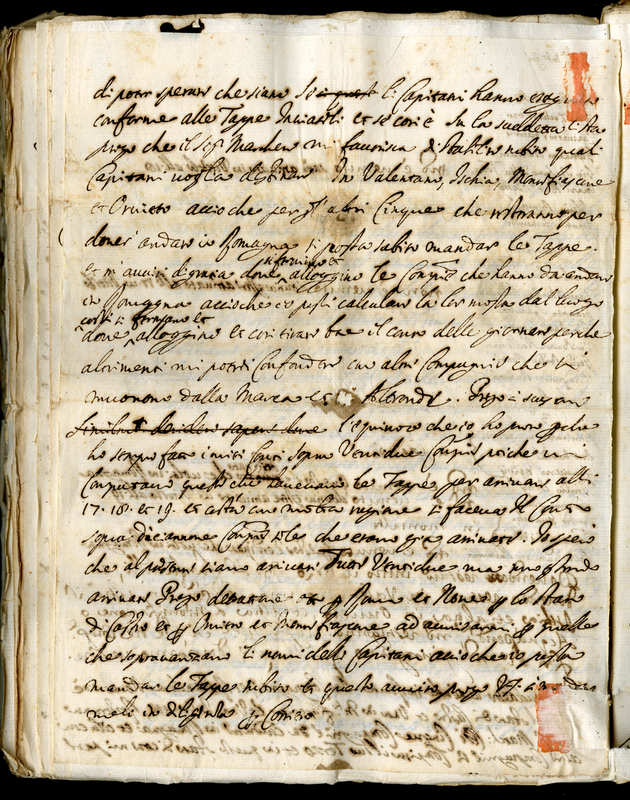 di poter sperare che siano se in questo li Capitani hanno
conforme alle Tappe Inviateli et se cosi è sù la suddetta lista
prego che il sigr Marchese mi favorisca di stabilire subito quali
Capitani voglia di Stare In Valentano, Ischia, Montefiascone
et Orvieto accio che per gl'altri Cinque che restranno per
dover andare in Romagna si possa subito mandar le Tappe.
et m'avvisi di gratia dove si fermino et alloggino le Compie che hanno da andare
in Romagna accioche io possi calculare la lor mossa dal luogo
cosi si fermano et
dove alloggino et cosi tirare bene il conto delle giornate perche
altrimenti mi potrei confondere con altre Compagnie che si
muovono dalla Marca et . Prego
Similmte desidero sapere dove l'equivoco che io ho preso è che
ho sempre fatto i miei Conti sopra Ventidue Compie poiche
Computavo queste che havevano le Tappe per arrivare alli
17. 18. et 19. et costà con molta ragione si faceva Il Conto
sopra diciannove Compie che erano già arrivate. Io spero
che al presente siano arrivate Tutte Ventidue ma non essendo
arrivate Prego
di Castro et Orvieto et Montefiascone ad avvisarmi quelle
che sopravanzano i nomi delli Capitani accioche io possa
mandar le Tappe subito et questo avviso prego V.S. à
meli in diligenza Corriero